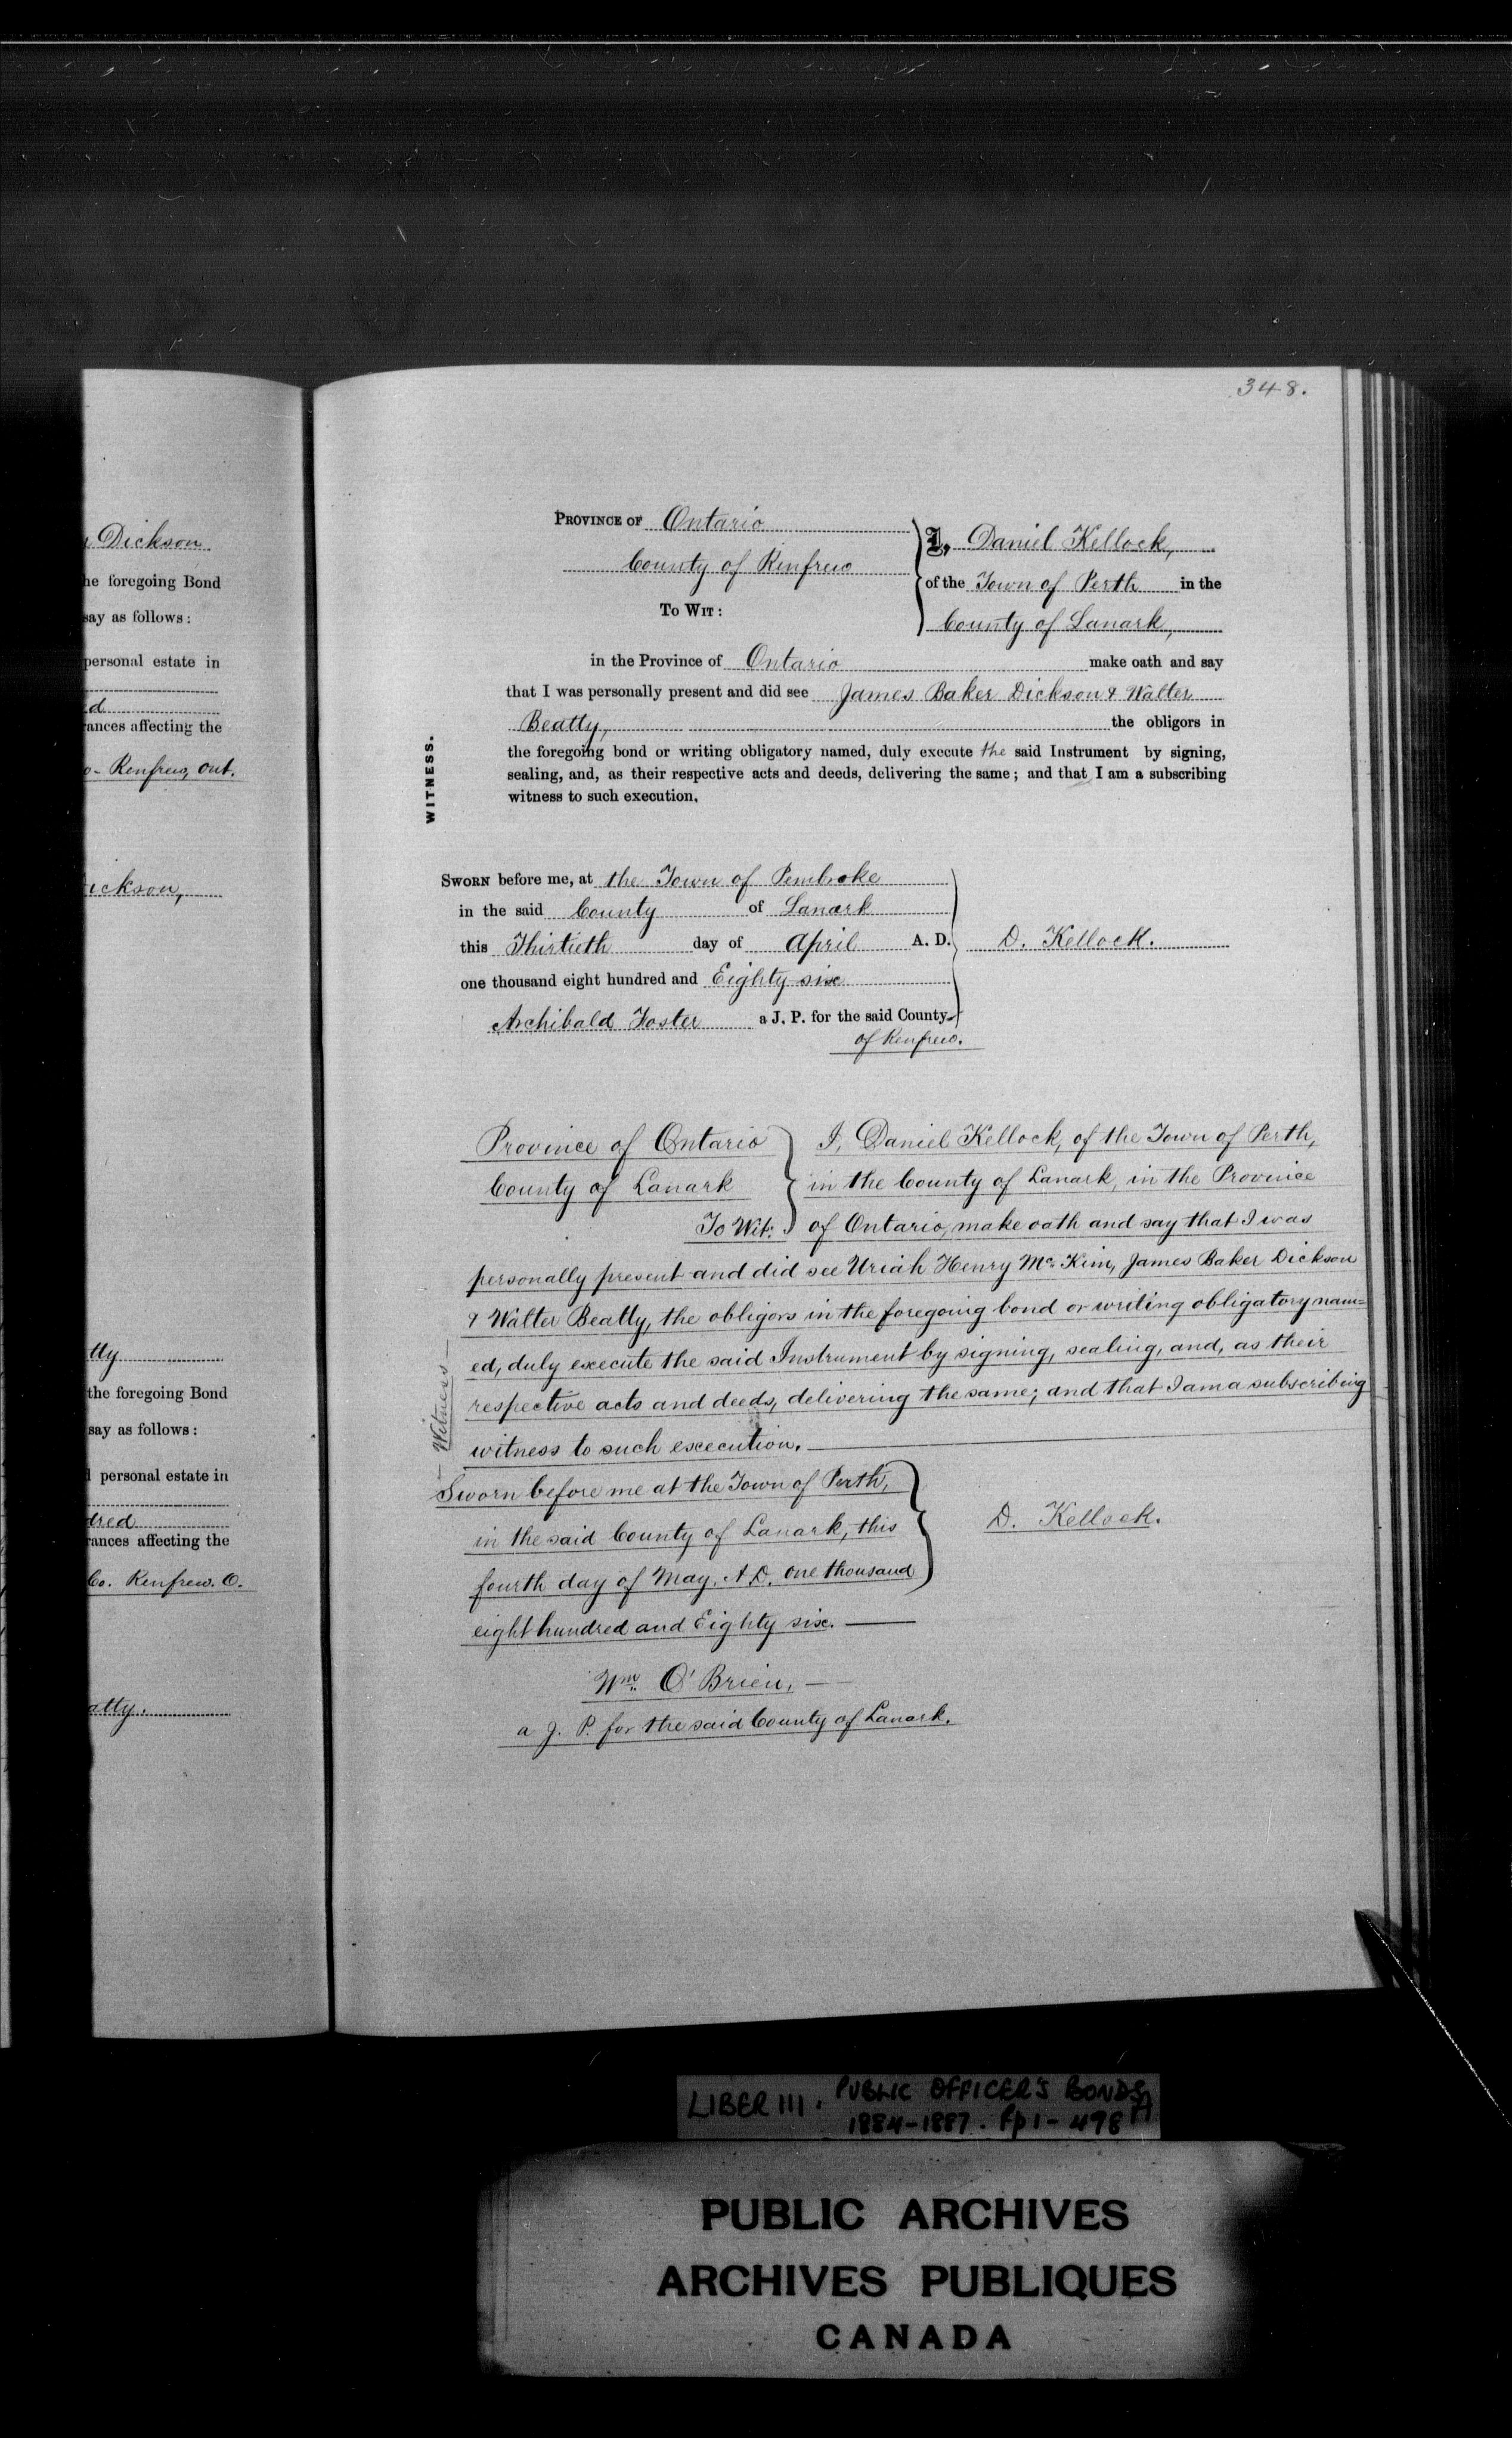 348.
Dickson
he foregoing Bond
say as follows:
personal estate in
d
rances affecting the
o- Renfrew, Ont.
ickson,
tty
the foregoing Bond
say as follows:
l personal estate in
dred
rances affecting the
Co. Renfrew. O.
atty.
PROVINCE OF Ontario
County of Renfrew
TO WIT:
I, Daniel Kellock,
of the Town of Perth in the
County of Lanark,
in the Province of Ontario make oath and say
that I was personally present and did see James Baker Dickson & Walter
Beatty, the obligors in
the foregoing bond or writing obligatory named, duly execute the said Instrument by signing,
sealing, and, as their respective acts and deeds, delivering the same; and that I am a subscribing
witness to such execution.
WITNESS.
SWORN before me, at the Town of Pembroke
in the said County of Lanark
this Thirtieth day of April A. D.
one thousand eight hundred and Eighty six
Archibald Foster a J. P. for the said County
of Renfrew.
D. Kellock.
Province of Ontario
County of Lanark
To Wit:
I, Daniel Kellock, of the Town of Perth,
in the County of Lanark, in the Province
of Ontario, make oath and say that I was
personally present and did see Uriah Henry Mc Kim, James Baker Dickson
& Walter Beatty, the obligors in the foregoing bond or writing obligatory nam=
ed, duly execute the said Instrument by signing, sealing, and, as their
respective acts and deeds, delivering the same; and that I am a subscribing
witness to such execution.
— Witness —
Sworn before me at the Town of Perth,
in the said County of Lanark, this
fourth day of May, A.D. one thousand
eight hundred and Eighty six.
D. Kellock.
Wm. O'Brien,
a J. P. for the said County of Lanark.
LIBER III. PUBLIC OFFICER'S BONDS
1884-1887. fp 1- 498 A
PUBLIC ARCHIVES
ARCHIVES PUBLIQUES
CANADA